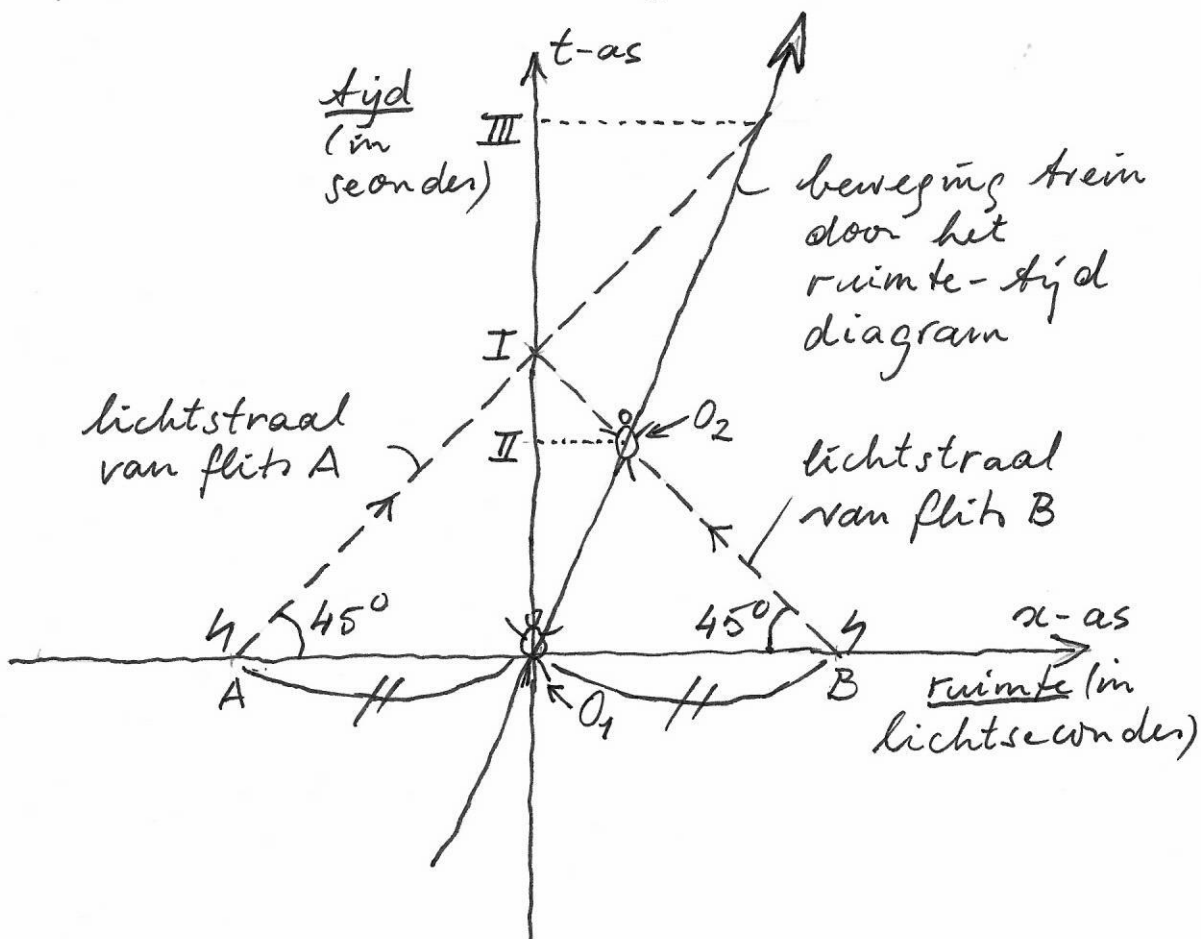 t-as
tijd
(in
seonden)
III
beweging trein
door het
ruimte-tijd
diagram
I
lichtstraal
van flits A
II
O2
lichtstraal
van flits B
45°
45°
x-as
A
B
O1
ruimte (in
lichtseconden)